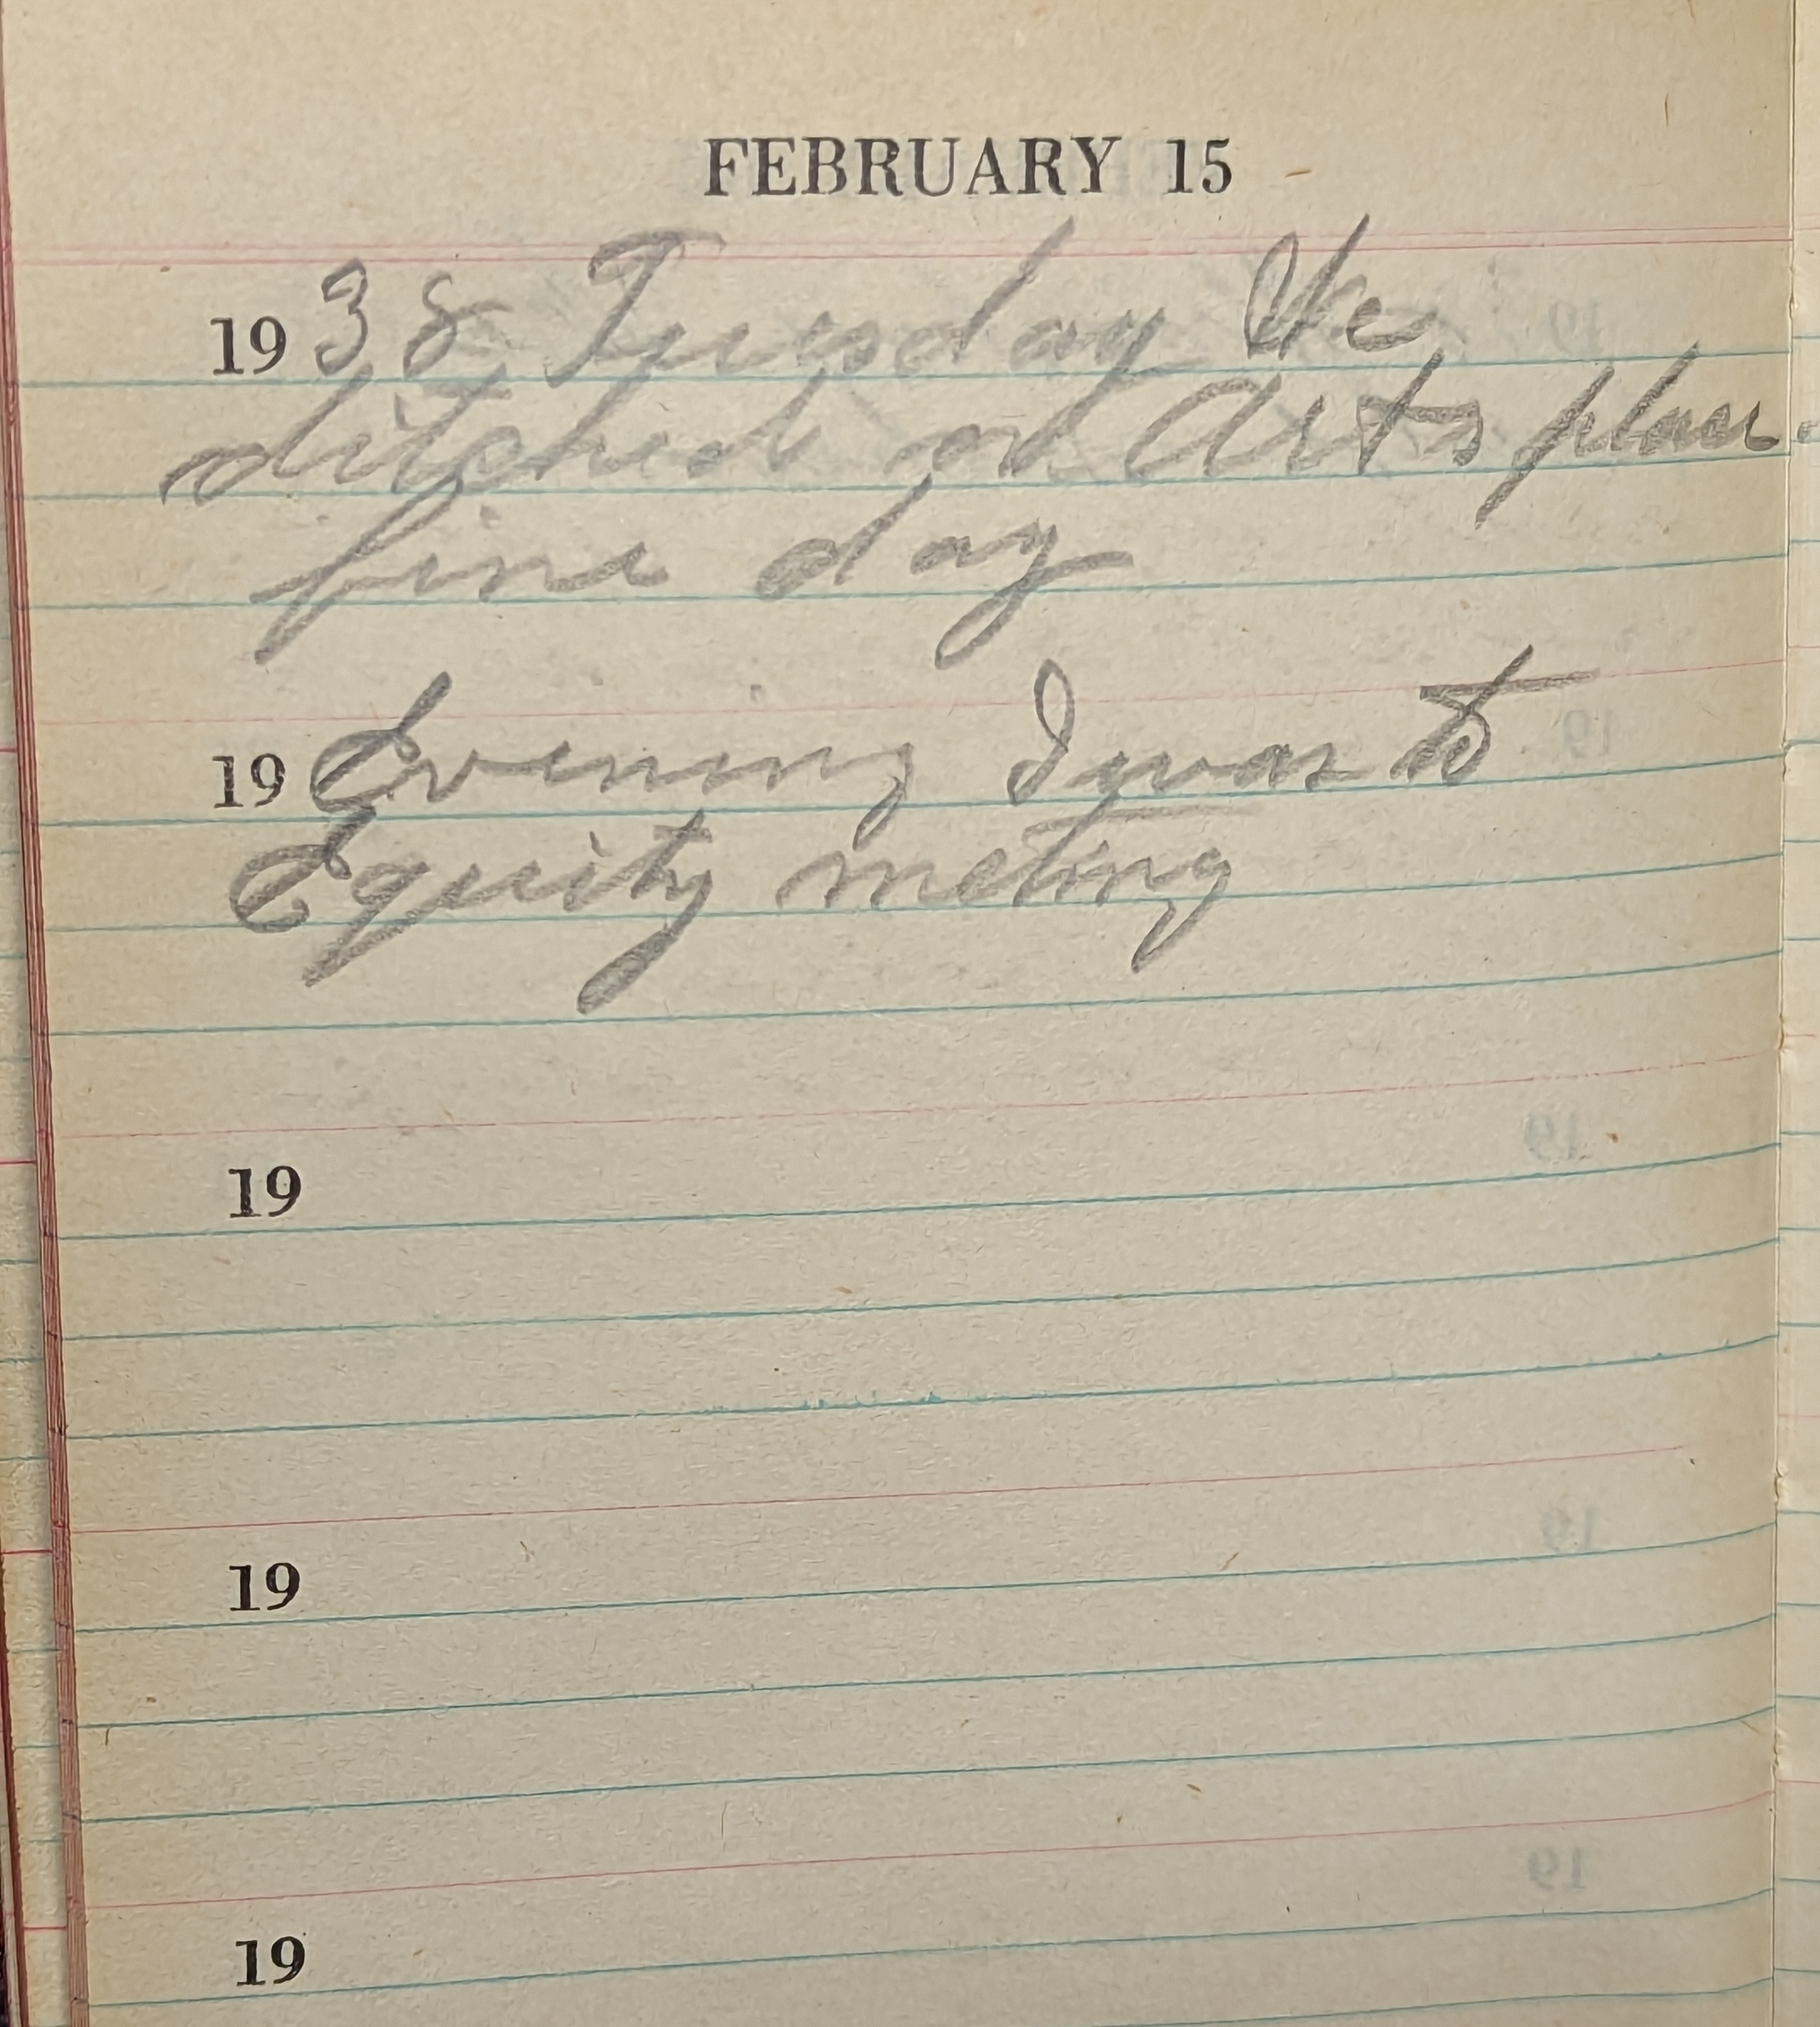 FEBRUARY 15
1938 Tuesday We
ditched at Arts place.
fine day
19 Evening I was to
Equity meting
19
19
19